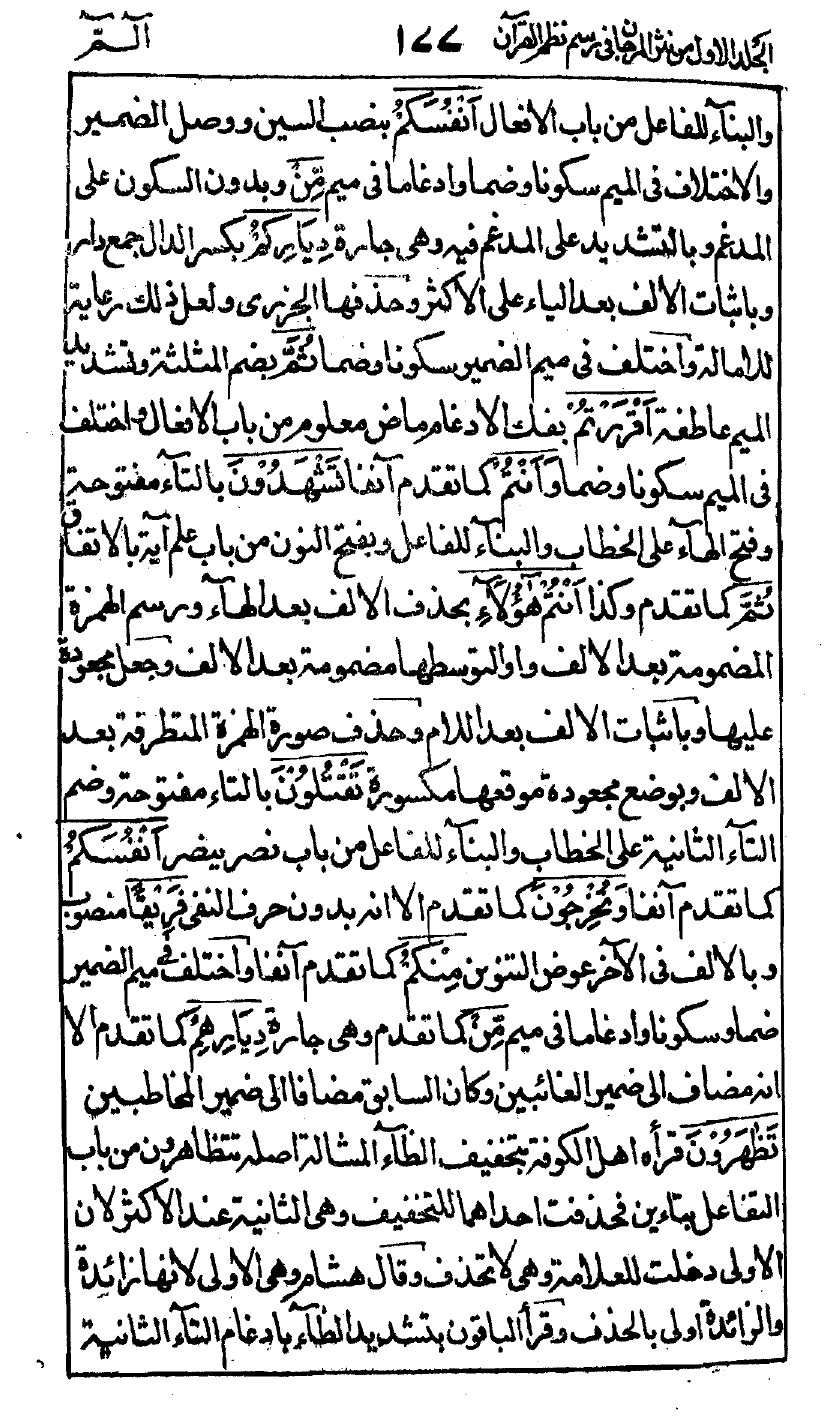 الجلد الاول من نثر المرجان فى رسم نظم القرآن ١٧٧ الـمّ
والبنآء للفاعل من باب الافعال اَنْفُسَكُمْ بنصب السين ووصل الضمير
والاختلاف فى الميم سكونا وضما وادغاما فى ميم مِّنْ وبدون السكون على
المدغم وبالتشديد على المدغم فيه وهى جارة دِيَارِكُمْ بكسر الدال جمع دار
وباثبات الالف بعد الياء على الاكثر وحذفها الجزرى ولعل ذلك رعاية
للامالة واختلف فى ميم الضمير سكونا وضما ثُمَّ بضم المثلثة وتشديد
الميم عاطفة اَقْرَرْتُمْ بفك الادغام ماض معلوم من باب الافعال واختلف
فى الميم سكونا وضما وَاَنْتُمْ كما تقدم آنفا تَشْهَدُوْنَ بالتآء مفتوحة
وفتح الهآء على الخطاب والبنآء للفاعل وبفتح النون من باب علم آية بالاتفاق
ثُمَّ كما تقدم وكذا اَنْتُمْ هٰٓؤُلَآءِ بحذف الالف بعد الهآء ورسم الهمزة
المضمومة بعد الالف واوا لتوسطها مضمومة بعد الالف وجعل مجعودة
عليها وباثبات الالف بعد اللام وحذف صورة الهمزة المتطرفة بعد
الالف وبوضع مجعودة موقعها مكسورة تَقْتُلُوْنَ بالتاء مفتوحة وضم
التآء الثانية على الخطاب والبنآء للفاعل من باب نصر ينصر اَنْفُسَكُمْ
كما تقدم آنفا وَتُخْرِجُوْنَ كما تقدم الا انه بدون حرف النفى فَرِيْقًا منصوب
وبالالف فى الآخر عوض التنوين مِنْكُمْ كما تقدم آنفا واختلف فى ميم الضمير
ضما وسكونا وادغاما فى ميم مِّنْ كما تقدم وهى جارة دِيَارِهِمْ كما تقدم الا
انه مضاف الى ضمير الغائبين وكان السابق مضافا الى ضمير المخاطبين
تَظٰهَرُوْنَ قرأه اهل الكوفة بتخفيف الظآء المشالة اصله تتظاهرون من باب
التفاعل بتاءين فحذفت احداهما للتخفيف وهى الثانية عند الاكثر لان
الاولى دخلت للعلامة وهى لا تحذف وقال هشام وهى الاولى لانها زائدة
والزائدة اولى بالحذف وقرأ الباقون بتشديد الظآء بادغام التآء الثانية